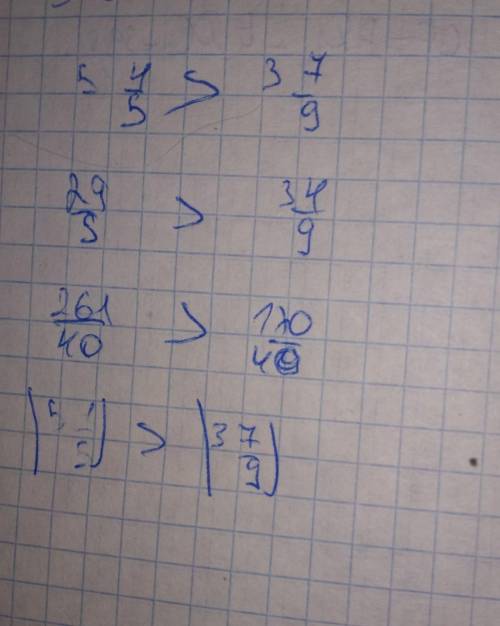 5 4/5 > 3 7/9
29/5 > 34/9
261/40 > 170/40
|5 4/5| > |3 7/9|